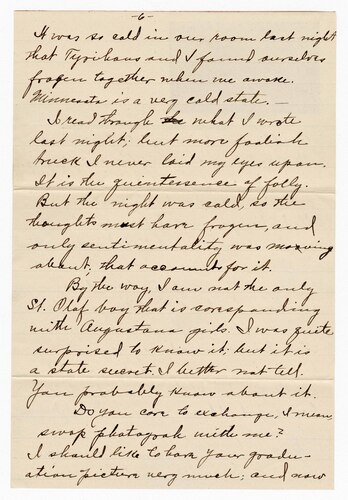 -6-
It was so cold in our room last night
that Tyrihaus and I found ourselves
frozen together when we awoke.
Minnesota is a very cold state. —
I read through the what I wrote
last night; but more foolish
truck I never laid my eyes upon.
It is the quintessence of folly.
But the night was cold, so the
thoughts must have frozen, and
only sentimentality was moving
about, that accounts for it.
By the way, I am not the only
St. Olaf boy that is coresponding
with Augustana girls. I was quite
surprised to know it; but it is
a state secret, I better not tell.
You probably know about it.
Do you care to exchange, I mean
swop photograh with me?
I should like to have your gradu-
ation picture very much; and now